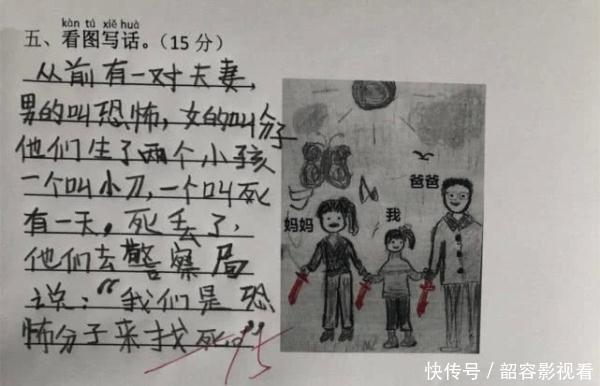 kàn tú xiě huà
五、看图写话。(15分)
从前有一对夫妻,
男的叫恐怖,女的叫分子
他们生了两个小孩
一个叫小刀,一个叫死
有一天,死丢了,
他们去警察局
说:“我们是恐
怖分子来找死。”
-15
妈妈
我
爸爸
快传号/韶容影视看